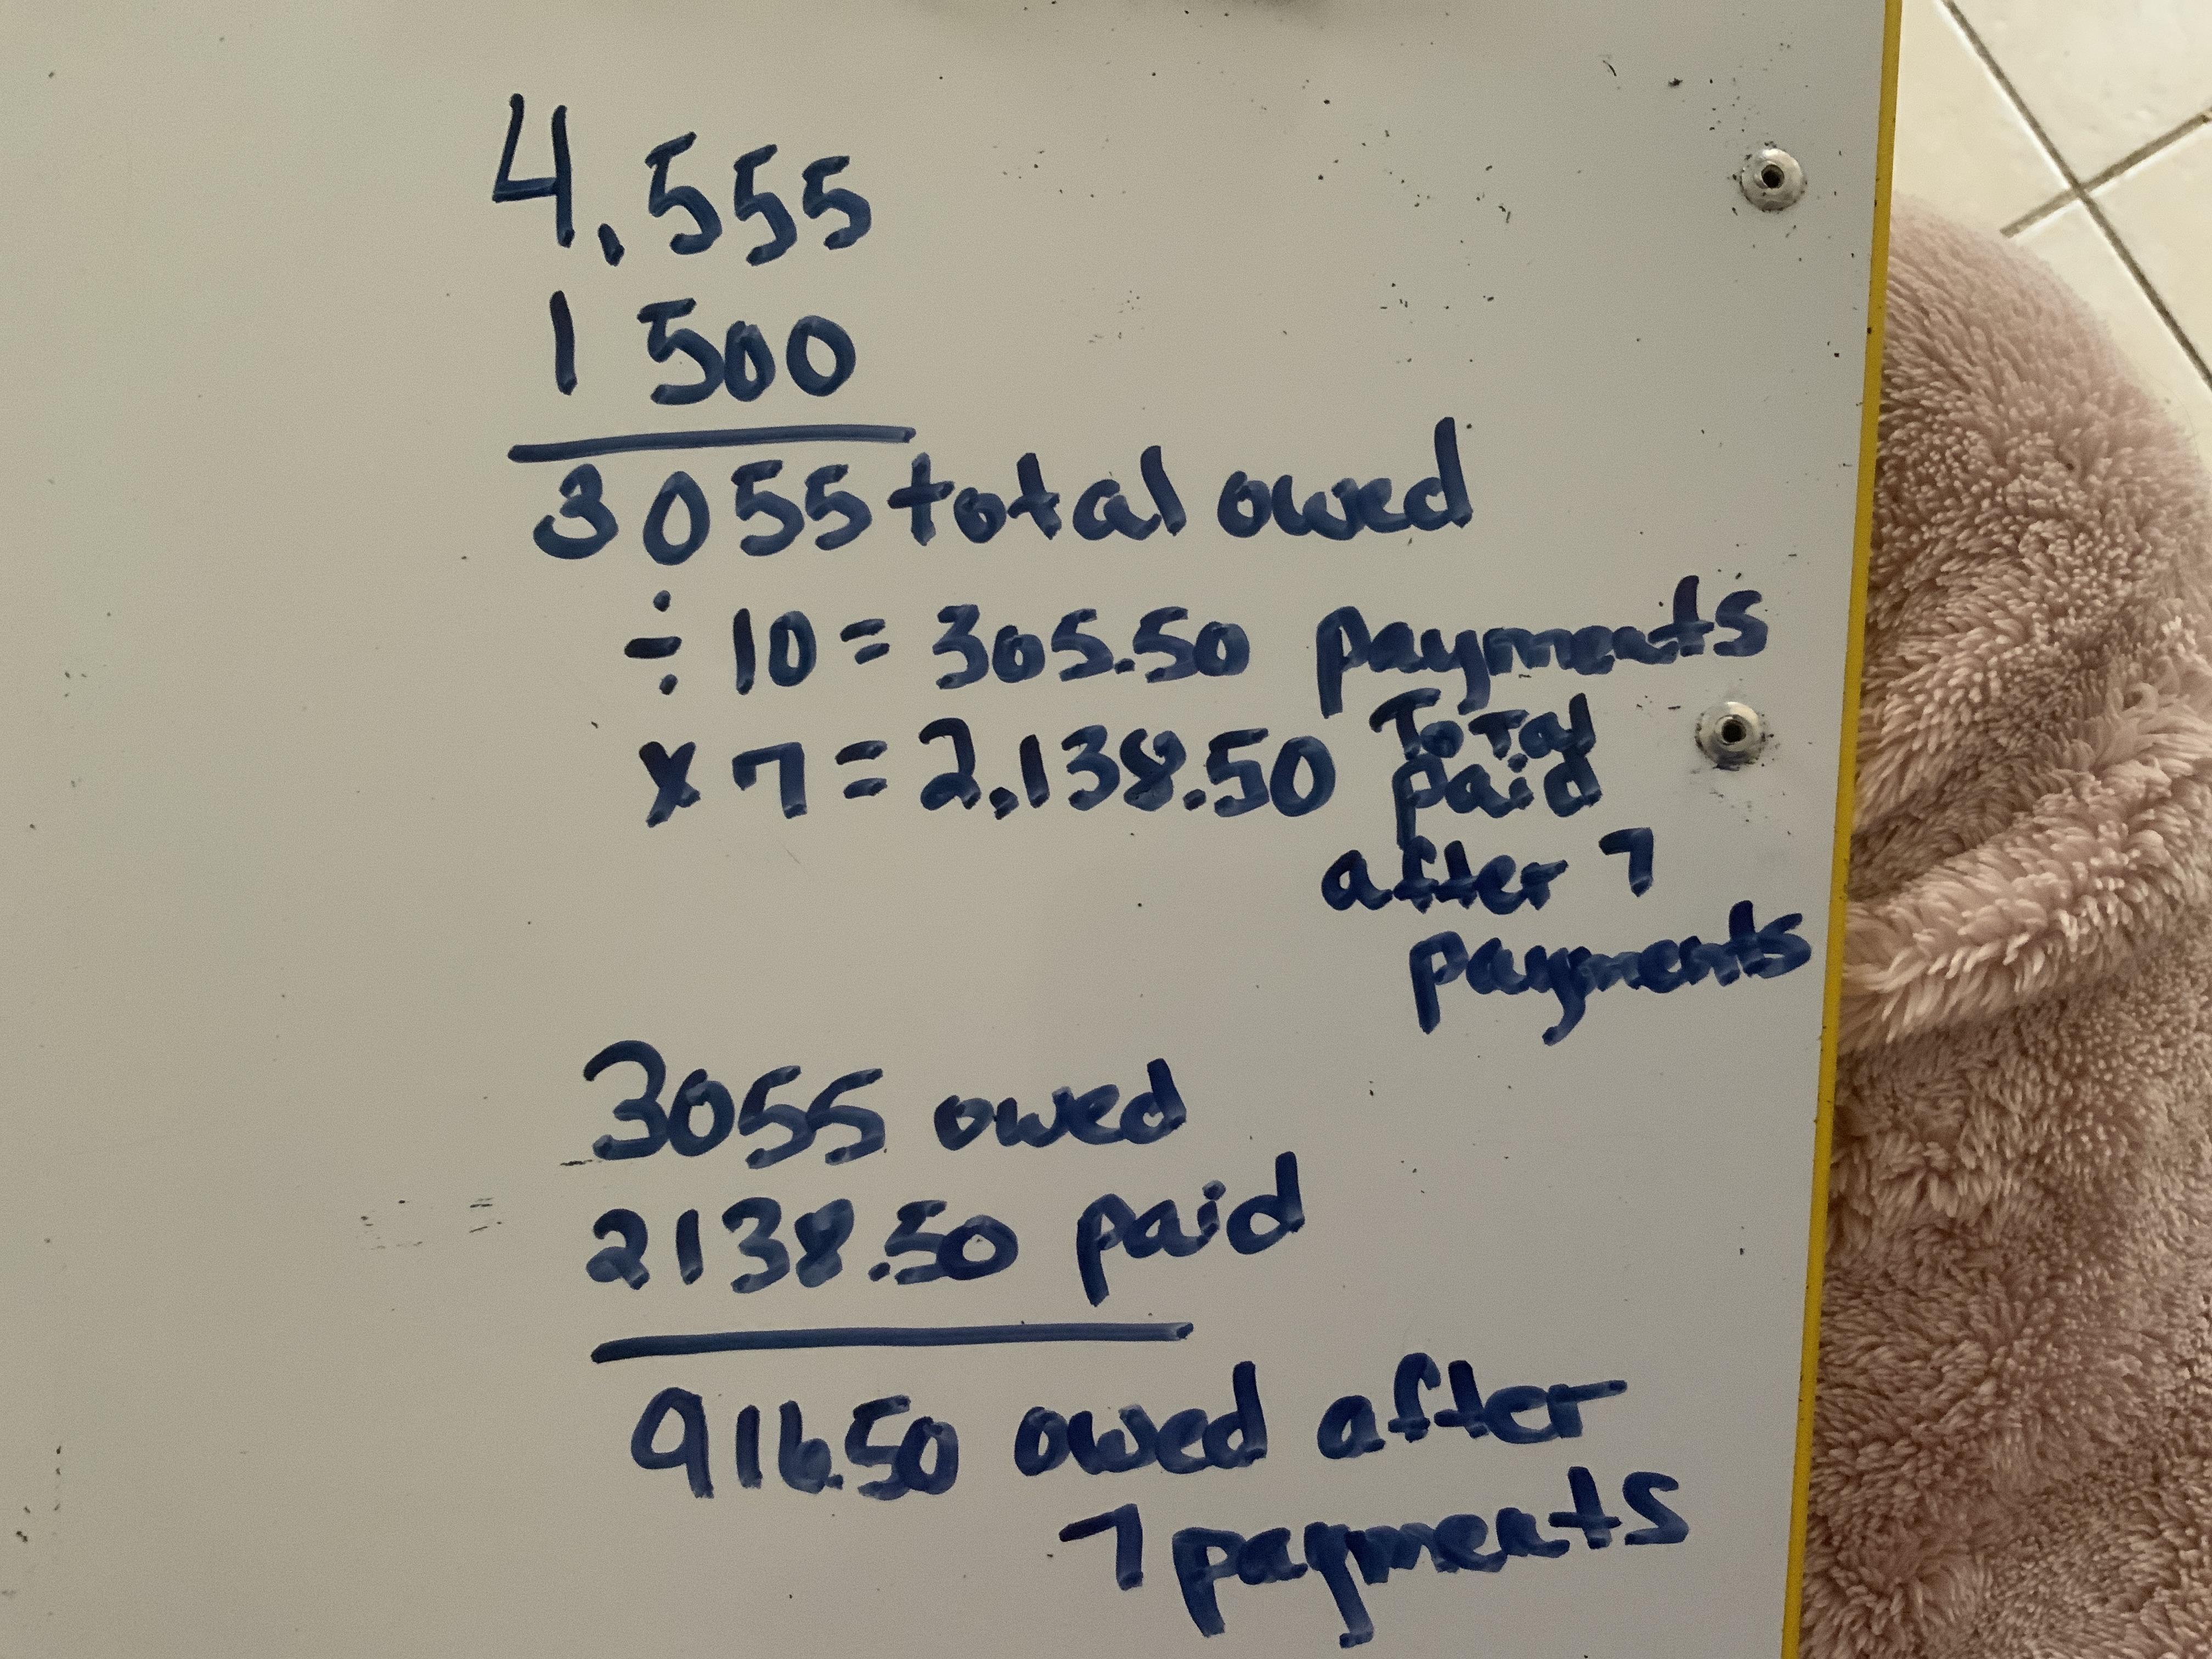 4,555
1 500
3055 total owed
÷ 10 = 305.50 payments
x 7 = 2,138.50 Total
paid
after 7
payments
3055 owed
2138.50 paid
916.50 owed after
7 payments